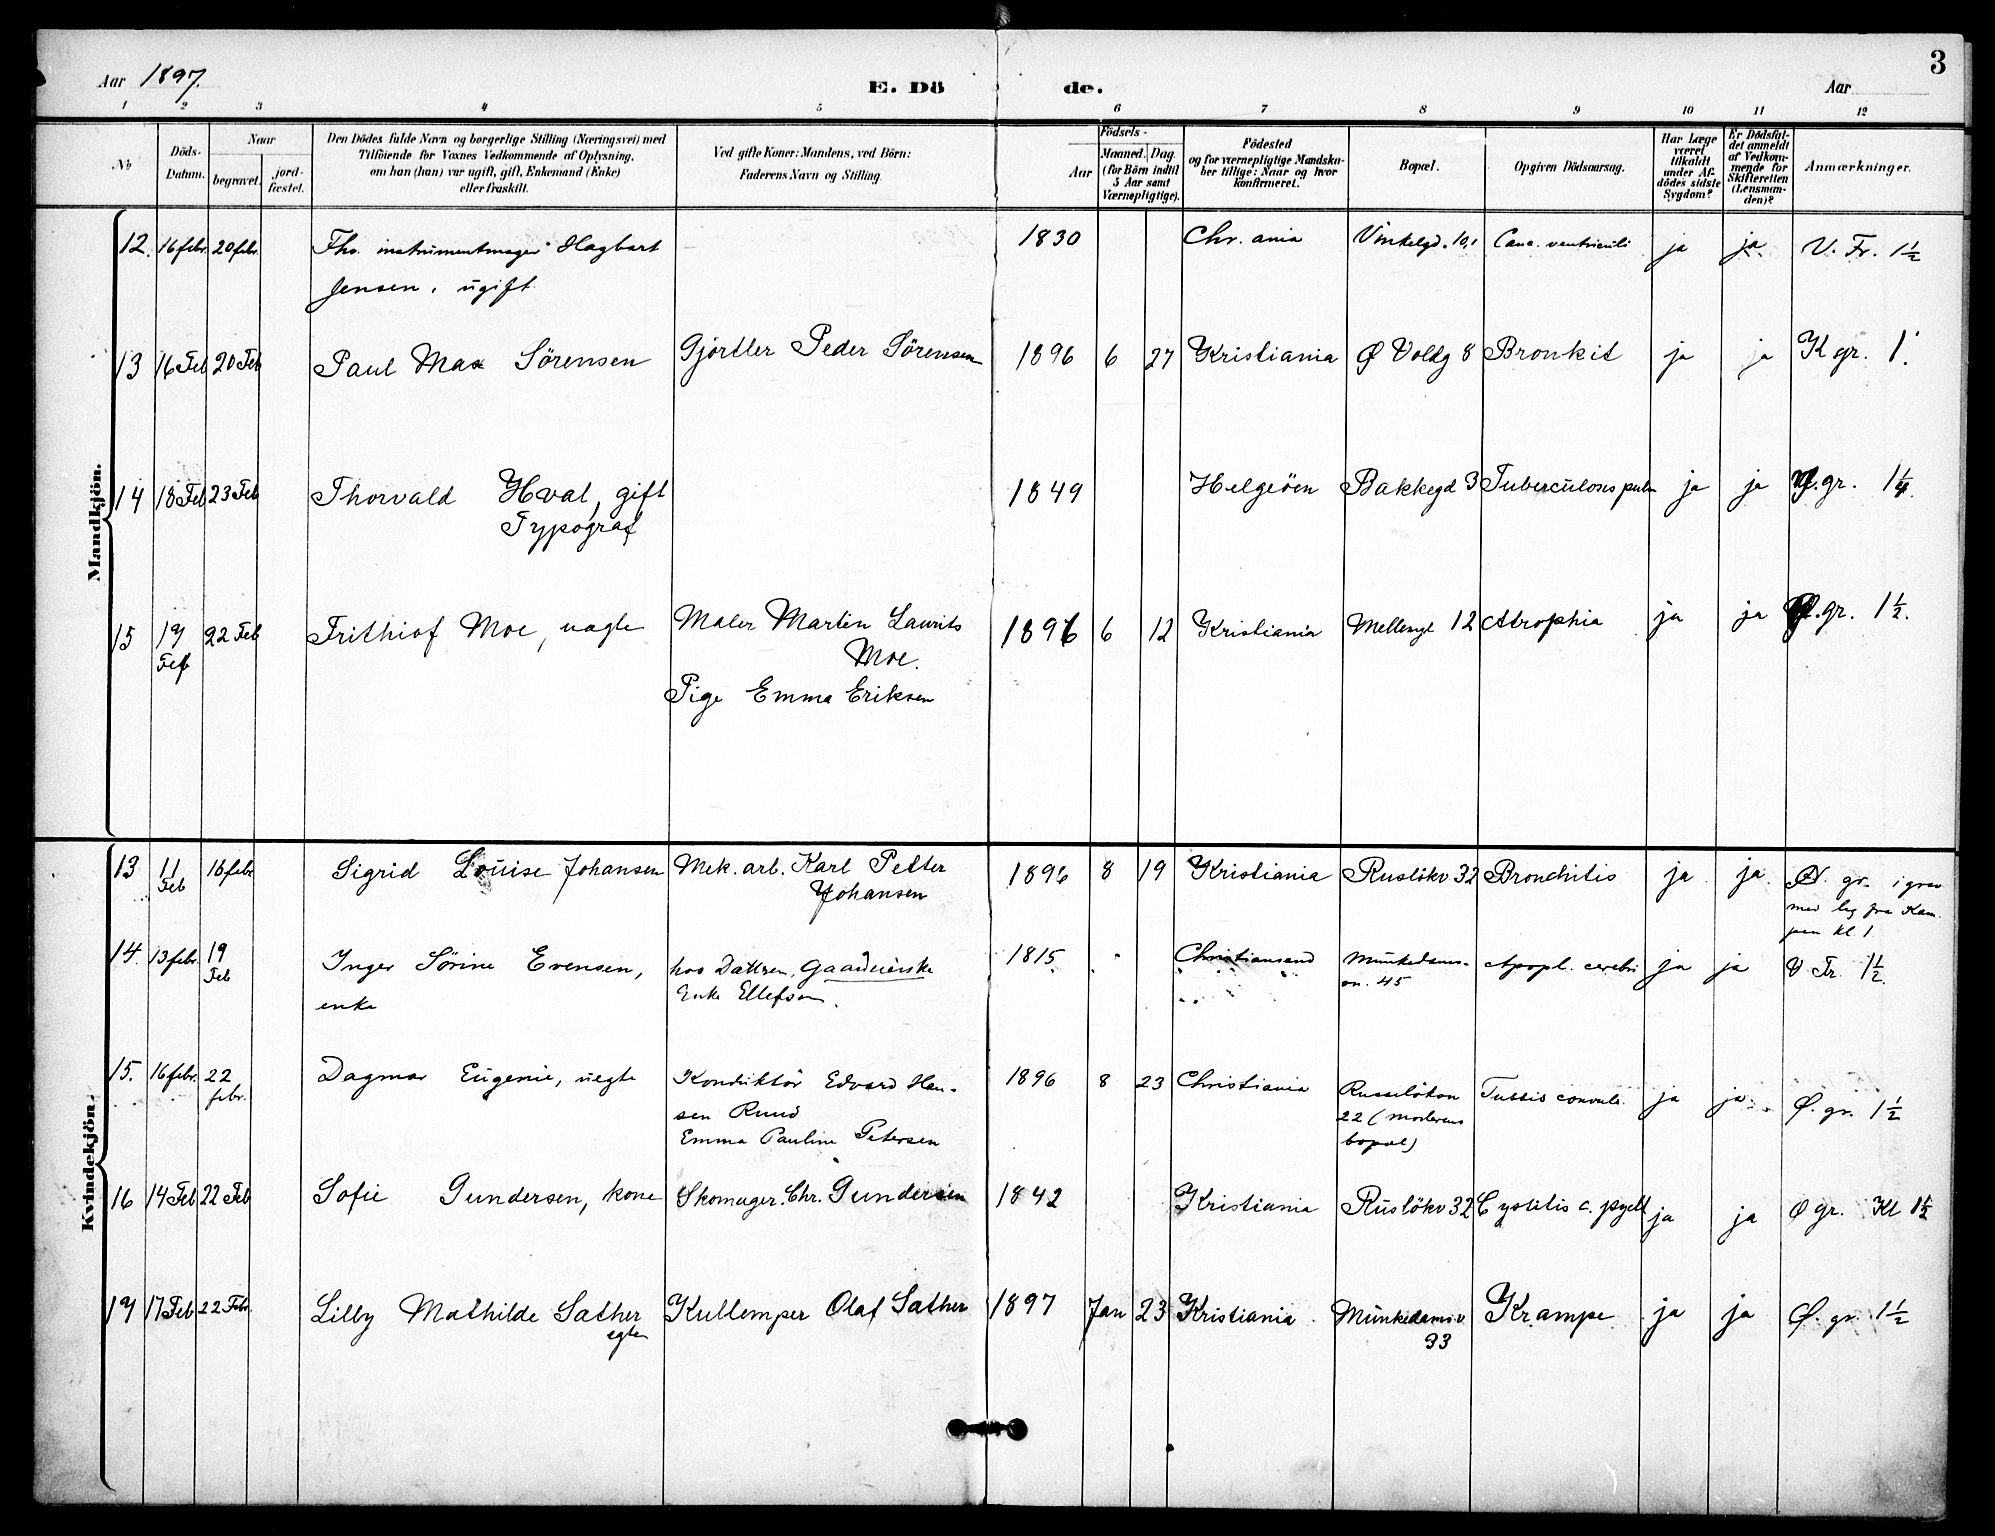 3
Aar 1897. E. Dö de. Aar
1 2 3 4 5 6 7 8 9 10 11 12
No
Döds-
Datum.
Naar
begravet. jord-
fæstet.
Den Dödes fulde Navn og borgerlige Stilling (Næringsvei) med
Tilföiende for Voxnes Vedkommende af Oplysning,
om han (hun) var ugift, gift, Enkemand (Enke)
eller fraskilt.
Ved gifte Koner: Mandens, ved Börn:
Faderens Navn og Stilling
Födsels-
Aar
Maaned. Dag.
(for Börn indtil
5 Aar samt
Værnepligtige).
Födested
og for værnepligtige Mandska-
ber tillige: Naar og hvor
konfirmeret.
Bopæl.
Opgiven Dödsaarsag.
Har Læge
været
tilkaldt
under Af-
dödes sidste
Sygdom?
Er Dödsfal-
det anmeldt
af Vedkom-
mende for
Skifteretten
(Lensman-
den)?
Anmærkninger.
Mandkjön.
12. 16 febr. 20 febr. Fhv. instrumentmager Hagbart 1830 Chr. ania Vinkelgd. 10,1 Canc. ventriculi ja ja V. Fr. 1½
Jensen, ugift
13 16 Feb 20 Feb Paul Max Sörensen Gjörtler Peder Sörensen 1896 6 27 Kristiania Ø Voldg 8 Bronkit ja ja K gr. 1
14 18 Feb 23 Feb Thorvald Hval, gift 1849 Helgeöen Bakkegd 3 Tuberculons pulm ja ja gr. 1¼
Typograf
15 19 22 Feb Frithiof Moe, uægte Maler Martin Laurits 1896 6 12 Kristiania Mellemgt 12 Atrophia ja ja Ø.gr. 1½.
Feb Moe.
Pige Emma Eriksen
Kvindekjön.
13 11 16 febr Sigrid Louise Johansen Mek. arb. Karl Petter 1896 8 19 Kristiania Ruslökv 32 Bronchitis ja ja gr. i grav
Feb Johansen med lig fra Kam-
pen kl. 1
14. 13 febr. 19 Inger Sörine Evensen, hos Dattren, Gaardenerske 1815 Christiansand Munkedams- Apopl. cerebri ja ja V Fr. 1½
Feb enke Enke Ellefsen. vn. 45
15. 16 febr. 22 Dagmar Eugenie, uegte Konduktör Edvard Han- 1896 8 23 Christiania Russelökvn Tussis convuls. ja ja Ø. gr. 1½
febr. sen Ruud 22 (moderens
Emma Pauline Petersen bopæl)
16 14 Feb 22 Feb Sofie Gundersen, kone Skomager. Chr. Gundersen 1842 Kristiania Ruslökv 32 Cystitis c. pyelit ja ja Ø gr. Kl 1½
17 17 Feb 22 Febr. Lilly Mathilde Sæther Kullemper Olaf Sæther 1897 Jan 23 Kristiania Munkedamsv Krampe ja ja Ø. gr. 1½
egte 93